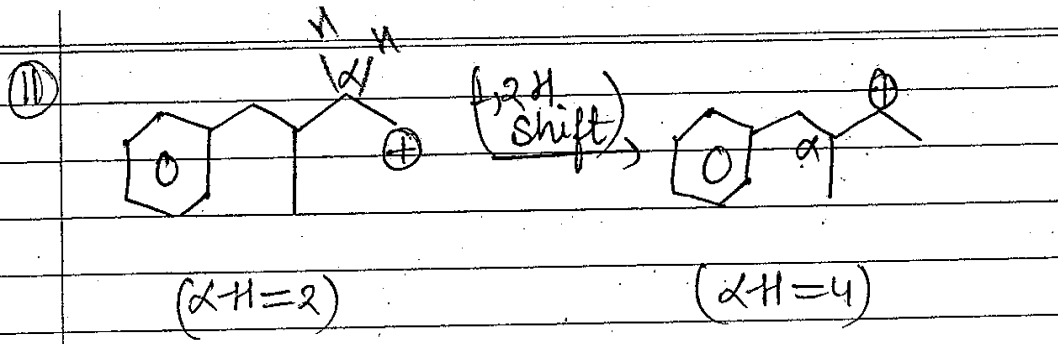 H H
(11)
α
(1,2 H
shift)
⊕
⊕
α
(α-H=2)
(α-H=4)